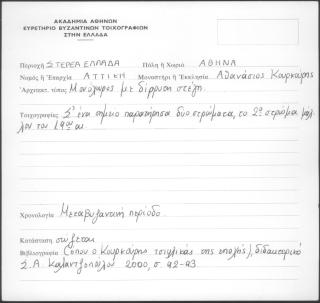 ΑΚΑΔΗΜΙΑ ΑΘΗΝΩΝ
ΕΥΡΕΤΗΡΙΟ ΒΥΖΑΝΤΙΝΩΝ ΤΟΙΧΟΓΡΑΦΙΩΝ
ΣΤΗΝ ΕΛΛΑΔΑ
Περιοχή ΣΤΕΡΕΑ ΕΛΛΑΔΑ Πόλη ή Χωριό ΑΘΗΝΑ
Νομός ή Ἐπαρχία ΑΤΤΙΚΗ Μοναστήρι ή Ἐκκλησία Αθανάσιος Κουρκούρης
Ἀρχιτεκτ. τύπος Μονόχωρος με δίρριχτη στέγη.
Τοιχογραφίες Σ' ένα σημείο παρατήρησα δύο στρώματα, το 2ο στρώμα μάλ-
λον του 19ου αι
Χρονολογία Μεταβυζαντινή περίοδο.
Κατάσταση σώζεται
Βιβλιογραφία (όπου ο Κουρκούρης της), διδακτορικό
Σ.Α. Καλαντζοπούλου 2000, σ. 92-93